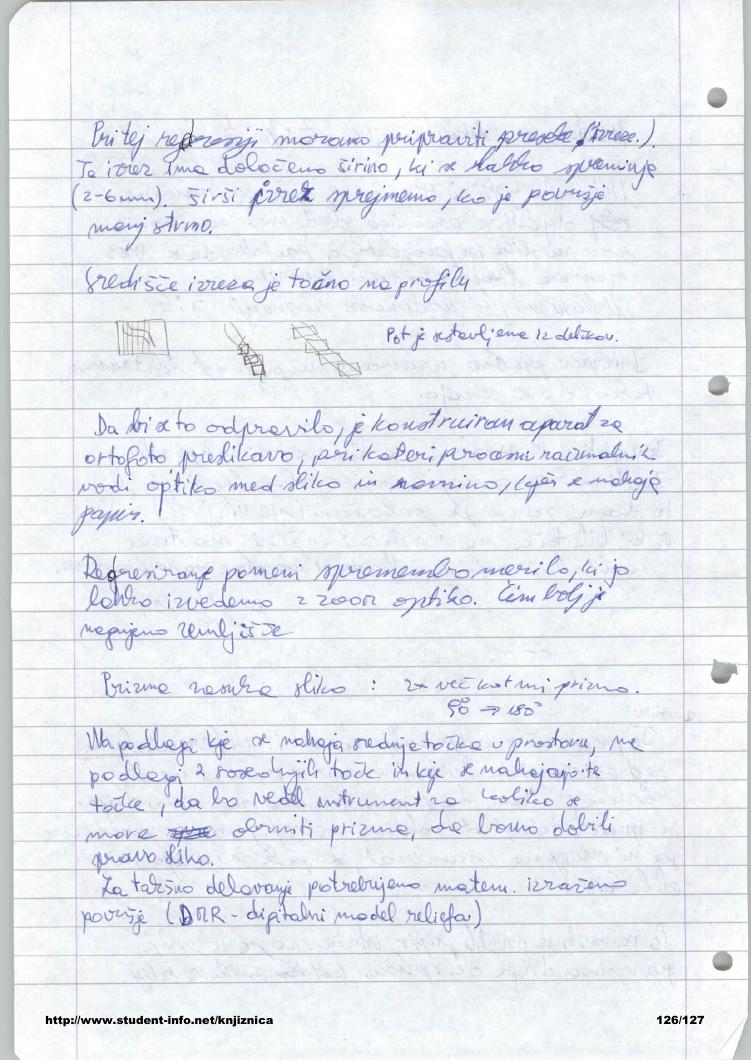 Pri tej redresiji moramo pripraviti preseke (izreze.).
Ta izrez ima določeno širino, ki se lahko spreminja
(2-6mm). Širši izrez sprejmemo, ko je površje
manj strmo.
Središče izreza je točno na profilu
Pot je sestavljena iz delikov.
Da bi se to odpravilo, je konstruiran aparat za
ortofoto preslikavo, pri kateri procesni računalnik
vodi optiko med sliko in ravnino, kjer se nahaja
papir.
Redresiranje pomeni spremembo merila, ki jo
lahko izvedemo z zoom optiko. Čim bolj je
nagnjeno zemljišče
Prizma zasuka sliko : 2x več kot mi prizmo.
90° → 180°
Na podlagi kje se nahaja srednja točka v prostoru, na
podlagi 2 sosednjih točk in kje se nahajajo te
točke, da bo vedel instrument za koliko se
mora obrniti prizma, da bomo dobili
pravo sliko.
Za takšno delovanje potrebujemo matem. izraženo
površje (DMR - digitalni model reliefa)
http://www.student-info.net/knjiznica
126/127